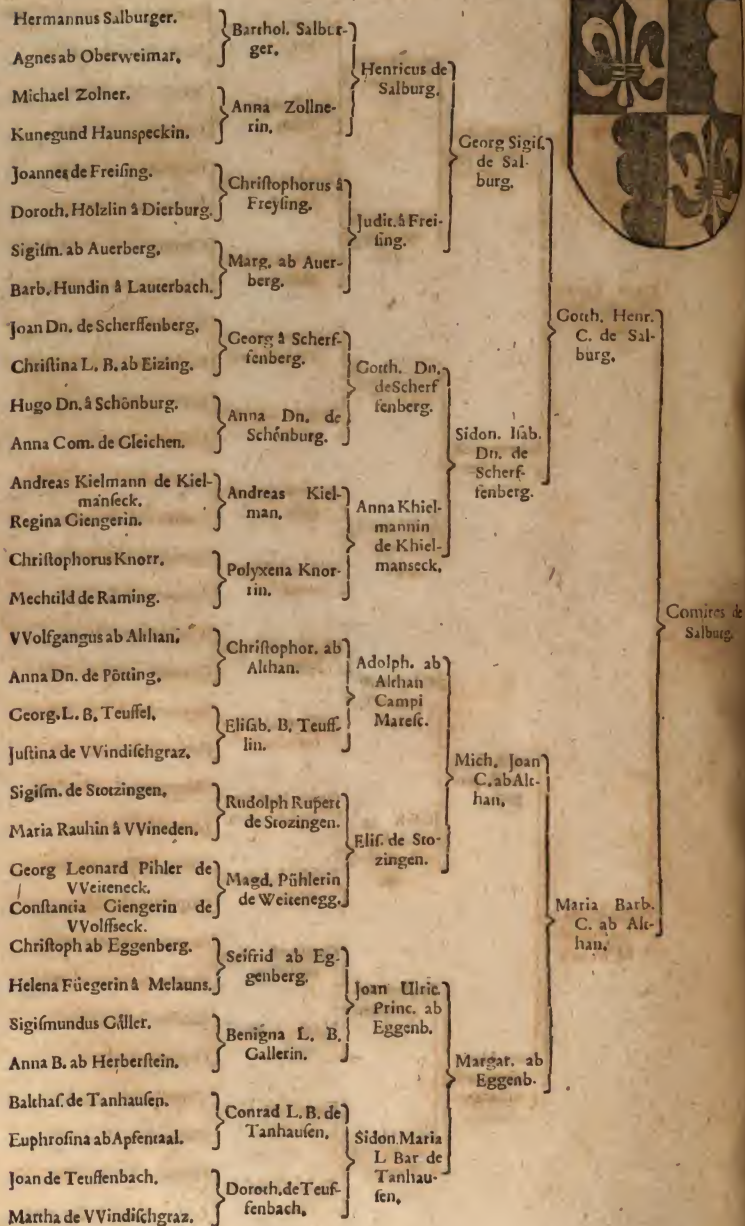 Hermannus Salburger.
Agnes ab Oberweimar,
Michael Zolner.
Kunegund Haunspeckin.
Joannes de Freiſing.
Doroth. Hölzlin â Dierburg.
Sigiſm. ab Auerberg,
Barb. Hundin â Lauterbach.
Joan Dn. de Scherffenberg,
Chriſtina L. B. ab Eizing.
Hugo Dn. â Schönburg.
Anna Com. de Gleichen.
Andreas Kielmann de Kiel-
manſeck.
Regina Giengerin.
Chriſtophorus Knorr,
Mechtild de Raming.
VVolfgangus ab Althan,
Anna Dn. de Pötting,
Georg. L. B, Teuffel,
Juſtina de VVindiſchgraz,
Sigiſm. de Stotzingen,
Maria Rauhin â VVineden,
Georg Leonard Pihler de
VVeiteneck.
Conſtantia Giengerin de
VVolffseck.
Chriſtoph ab Eggenberg.
Helena Füegerin â Melauns.
Sigiſmundus Gåller.
Anna B. ab Herberſtein,
Balthaſ. de Tanhauſen,
Euphroſina ab Apfentaal.
Joan de Teuffenbach,
Martha de VVindiſchgraz,
Barthol. Salbur-
ger,
Anna Zollne-
rin,
Chriſtophorus â
Freyſing,
Marg. ab Auer-
berg.
Georg â Scherf-
fenberg.
Anna Dn. de
Schénburg.
Andreas Kiel-
man,
Polyxena Knor-
rin,
Chriſtophor. ab
Althan.
Eliſab. B. Teuff-
lin.
Rudolph Rupert
de Stozingen.
Magd. Pühlerin
de Weitenegg.
Seifrid ab Eg-
genberg.
Benigna L. B.
Gallerin.
Conrad L. B. de
Tanhauſen,
Doroth. de Teuf-
fenbach,
Henricus de
Salburg.
Judit. â Frei-
ſing.
Gotth. Dn.
de Scherf
fenberg.
Anna Khiel-
mannin
de Khiel-
manseck,
Adolph. ab
Althan
Campi
Mareſc.
Eliſ. de Sto-
zingen.
Joan Ulric.
Princ. ab
Eggenb.
Sidon. Maria
L Bar de
Tanhau-
ſen,
Georg Sigiſ.
de Sal-
burg.
Sidon. Iſab.
Dn. de
Scherf-
fenberg.
Mich. Joan
C. ab Alt-
han,
Margar. ab
Eggenb.
Gotth. Henr.
C. de Sal-
burg,
Maria Barb.
C. ab Alt-
han,
Comites de
Salburg.